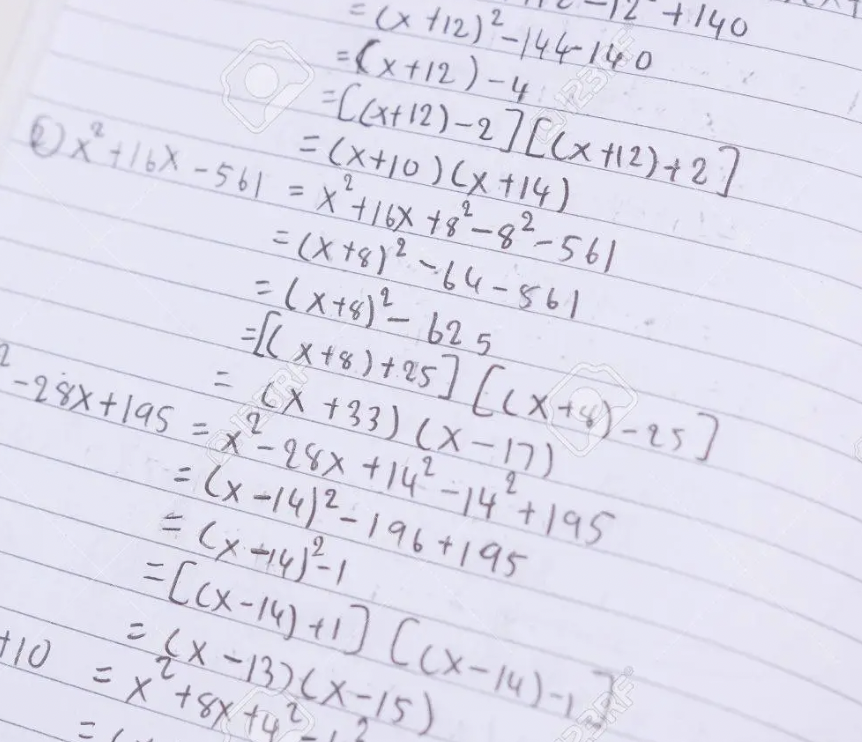 +140
= (x+12)² -144-140
= (x+12) -4
= [(x+12)-2] [(x+12)+2]
= (x+10)(x+14)
② x²+16x-561 = x²+16x+8²-8²-561
= (x+8)² -64-561
= (x+8)² - 625
= [(x+8)+25] [(x+8)-25]
= (x+33)(x-17)
²-28x+195 = x²-28x+14²-14²+195
= (x-14)² -196+195
= (x-14)²-1
= [(x-14)+1] [(x-14)-1]
= (x-13)(x-15)
+10 = x²+8x+4²-